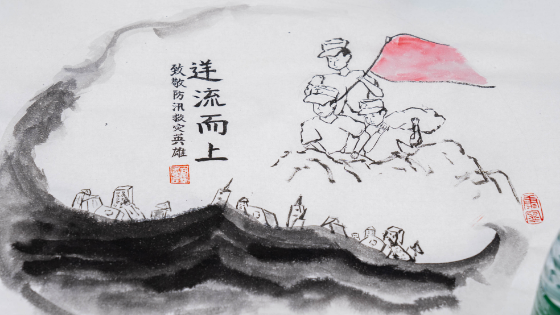 逆流而上
致敬防汛救灾英雄